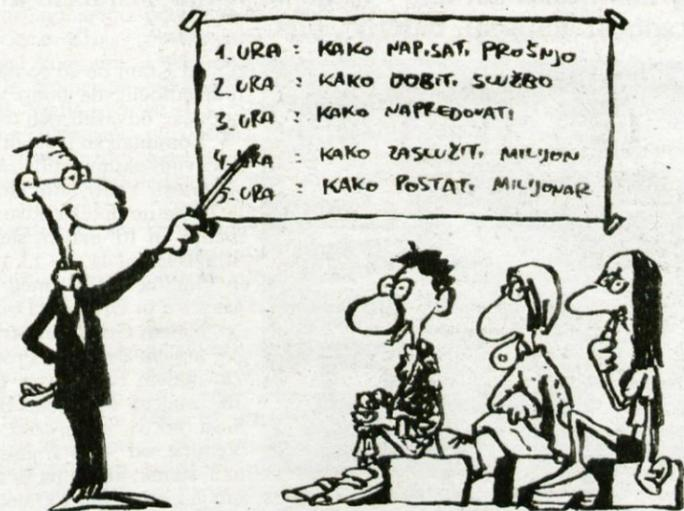 1. URA : KAKO NAPISATI PROŠNJO
2. URA : KAKO DOBITI SLUŽBO
3. URA : KAKO NAPREDOVATI
4. URA : KAKO ZASLUŽITI MILIJON
5. URA : KAKO POSTATI MILIJONAR